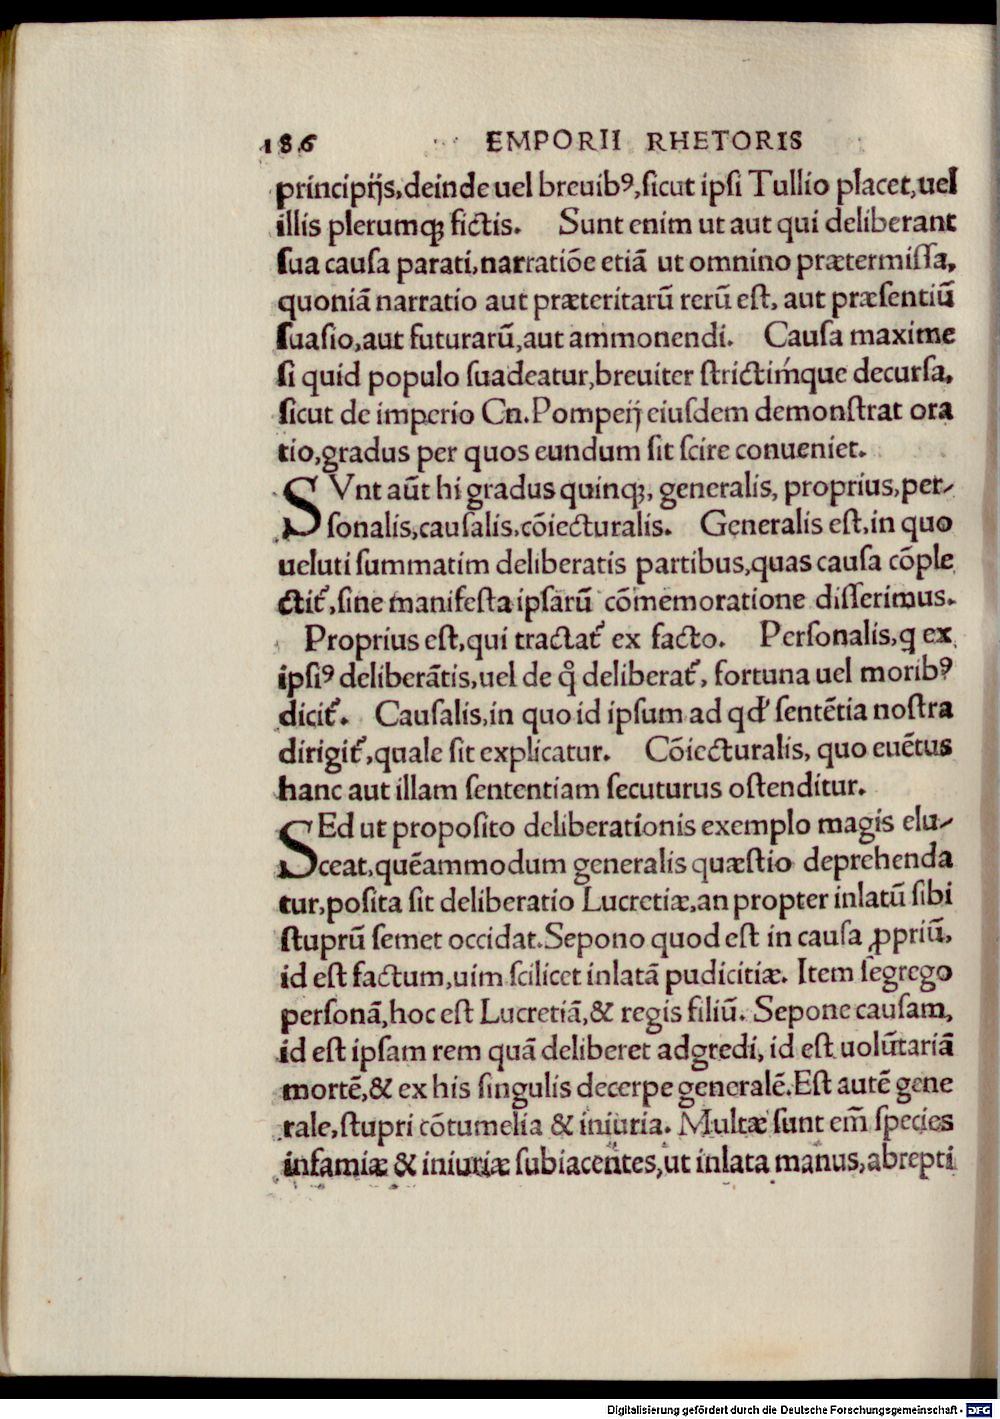 186 EMPORII RHETORIS
principijs, deinde uel breuibꝰ, sicut ipsi Tullio placet, uel
illis plerumqꝫ fictis. Sunt enim ut aut qui deliberant
sua causa parati, narratiōe etiā ut omnino prætermissa,
quoniā narratio aut præteritarū rerū est, aut præsentiū
suasio, aut futurarū, aut ammonendi. Causa maxime
si quid populo suadeatur, breuiter strictimq́ue decursa,
sicut de imperio Cn. Pompeij eiusdem demonstrat ora
tio, gradus per quos eundum sit scire conueniet.
SVnt aūt hi gradus quinqꝫ, generalis, proprius, per-
sonalis, causalis, cōiecturalis. Generalis est, in quo
ueluti summatim deliberatis partibus, quas causa cōple
ctit᷑, sine manifesta ipsarū cōmemoratione disserimus.
Proprius est, qui tractat᷑ ex facto. Personalis, q ex
ipsiꝰ deliberātis, uel de q̊ deliberat᷑, fortuna uel moribꝰ
dicit᷑. Causalis, in quo id ipsum ad qd' sentētia nostra
dirigit᷑, quale sit explicatur. Cōiecturalis, quo euētus
hanc aut illam sententiam secuturus ostenditur.
SEd ut proposito deliberationis exemplo magis elu-
ceat, quēammodum generalis quæstio deprehenda
tur, posita sit deliberatio Lucretiæ, an propter inlatū sibi
stuprū semet occidat. Sepono quod est in causa ꝓpriū,
id est factum, uim scilicet inlatā pudicitiæ. Item segrego
personā, hoc est Lucretiā, & regis filiū. Sepone causam,
id est ipsam rem quā deliberet adgredi, id est uolūtariā
mortē, & ex his singulis decerpe generalē. Est autē gene
rale, stupri cōtumelia & iniuria. Multæ sunt em̄ species
infamiæ & iniuriæ subiacentes, ut inlata manus, abrepti
Digitalisierung gefördert durch die Deutsche Forschungsgemeinschaft - DFG